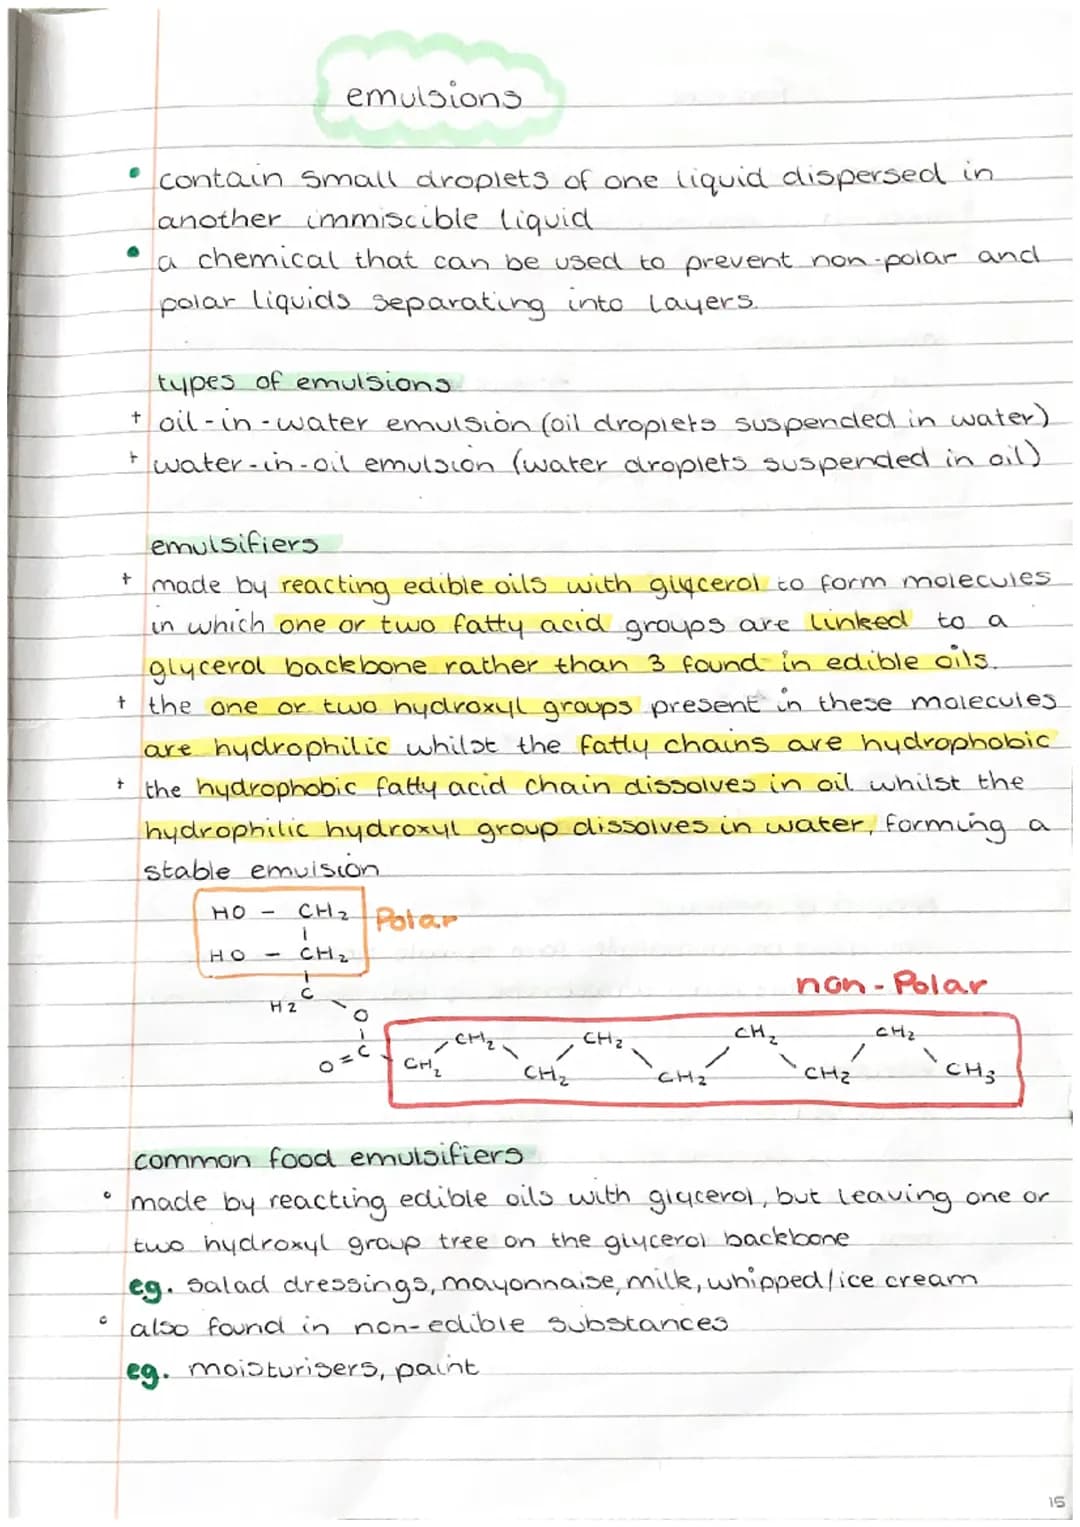 emulsions
• contain small droplets of one liquid dispersed in
another immiscible liquid
• a chemical that can be used to prevent non-polar and
polar liquids separating into layers.
types of emulsions
+ oil-in-water emulsion (oil droplets suspended in water)
+ water-in-oil emulsion (water droplets suspended in oil)
emulsifiers
+ made by reacting edible oils with glycerol to form molecules
in which one or two fatty acid groups are linked to a
glycerol backbone rather than 3 found in edible oils.
+ the one or two hydroxyl groups present in these molecules
are hydrophilic whilst the fatty chains are hydrophobic
+ the hydrophobic fatty acid chain dissolves in oil whilst the
hydrophilic hydroxyl group dissolves in water, forming a
stable emulsion
HO - CH2 Polar
HO - CH2
H2 C
non-Polar
O
CH2 CH2 CH2 CH2
O=C CH2 CH2 CH2 CH2 CH3
common food emulsifiers
• made by reacting edible oils with glycerol, but leaving one or
two hydroxyl group tree on the glycerol backbone
eg. salad dressings, mayonnaise, milk, whipped/ice cream
• also found in non-edible substances
eg. moisturisers, paint
15